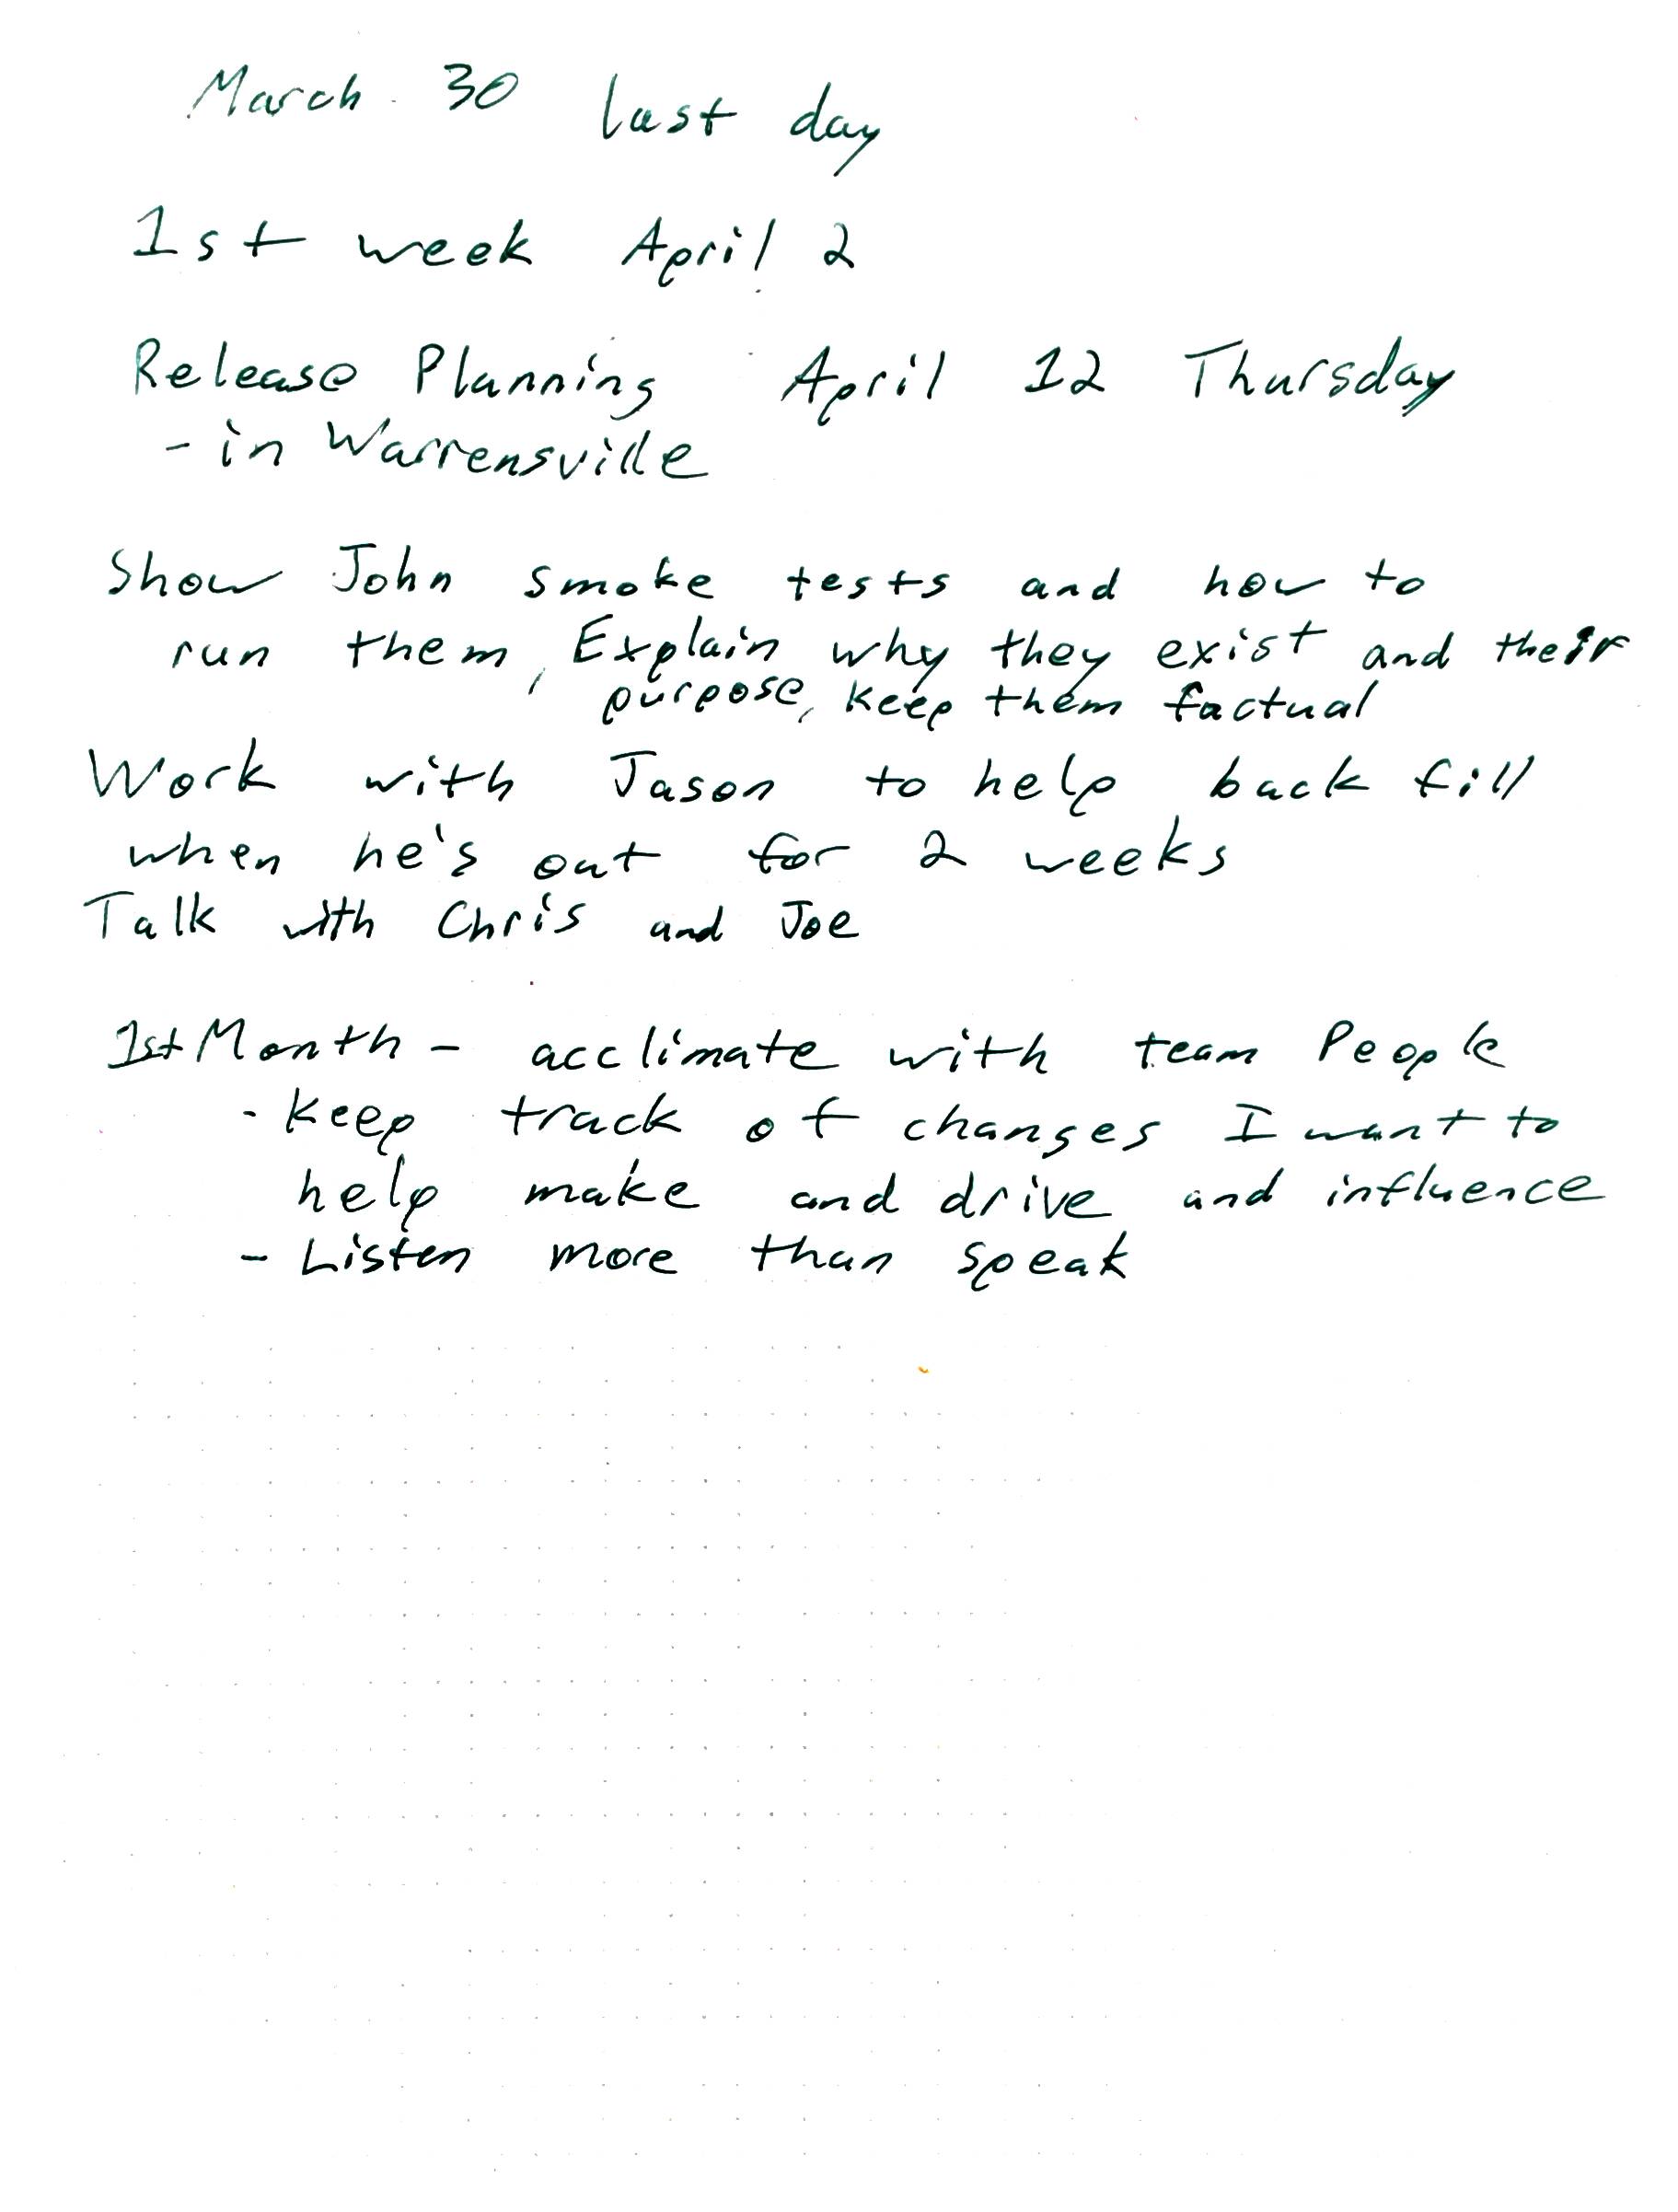 March 30 last day
1st week April 2
Release Planning April 12 Thursday
- in Warrensville
Show John smoke tests and how to
run them, Explain why they exist and their
purpose, keep them factual
Work with Jason to help back fill
when he's out for 2 weeks
Talk with Chris and Joe
1st Month - acclimate with team People
- Keep track of changes I want to
help make and drive and influence
- Listen more than speak